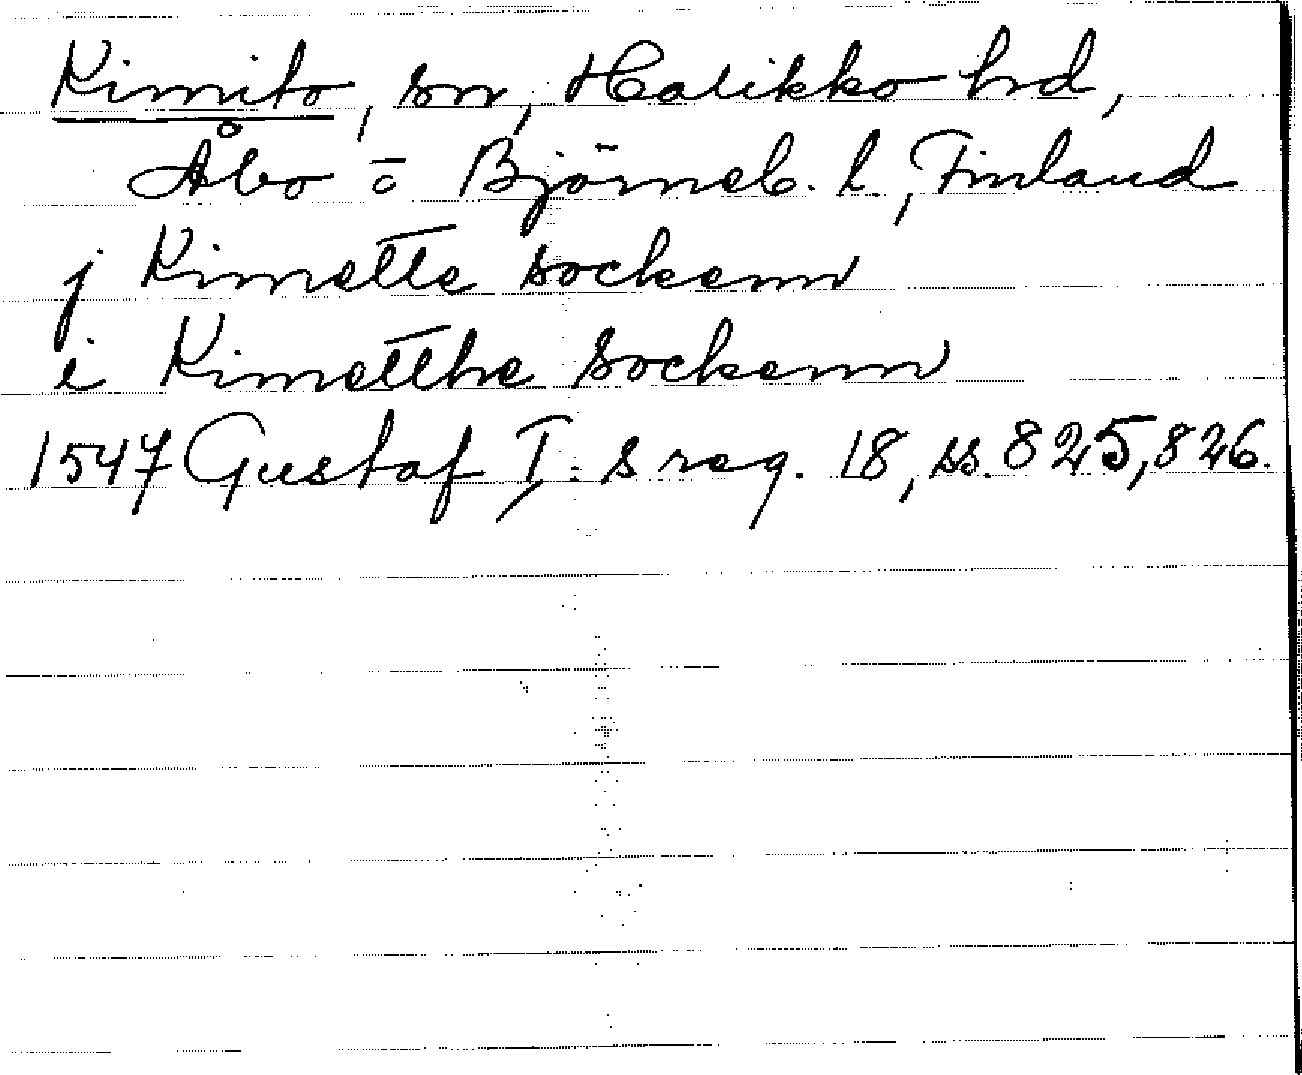 Kimito, sn, Halikko hd,
Åbo o Björneb. l, Finland
j Kimette sockenn
i Kimetthe sockenn
1547 Gustaf I:s reg. 18, ss. 825, 826.